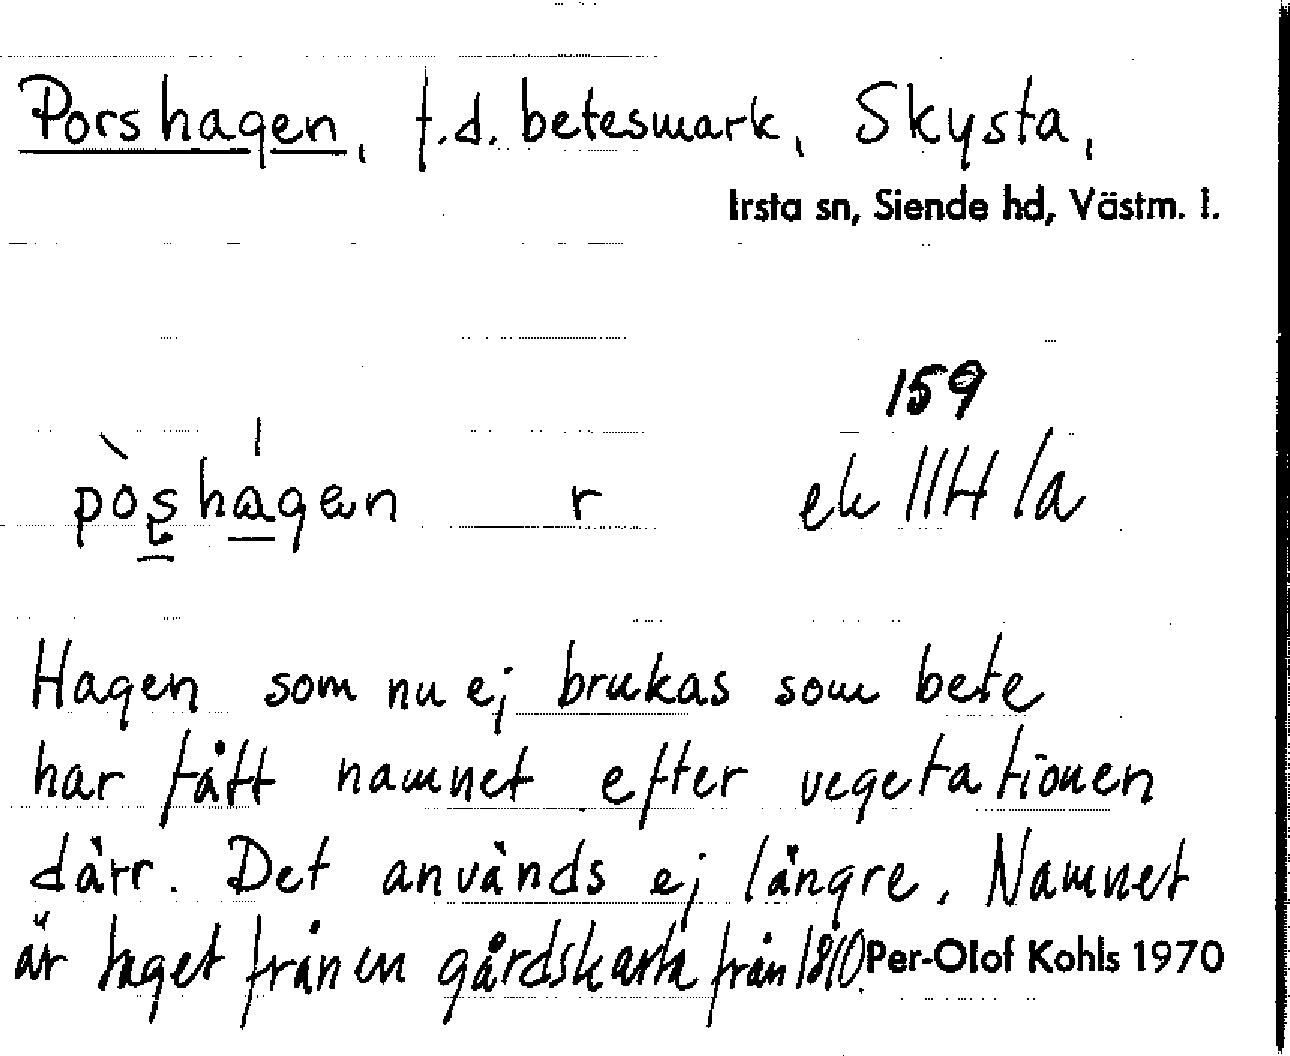 Porshagen, f.d. betesmark, Skysta,
Irsta sn, Siende hd, Västm. l.
159
pòʂhágen r ek 11H 1a
Hagen som nu ej brukas som bete
har fått namnet efter vegetationen
därr. Det används ej längre. Namnet
är taget från en gårdskarta från 1810. Per-Olof Kohls 1970